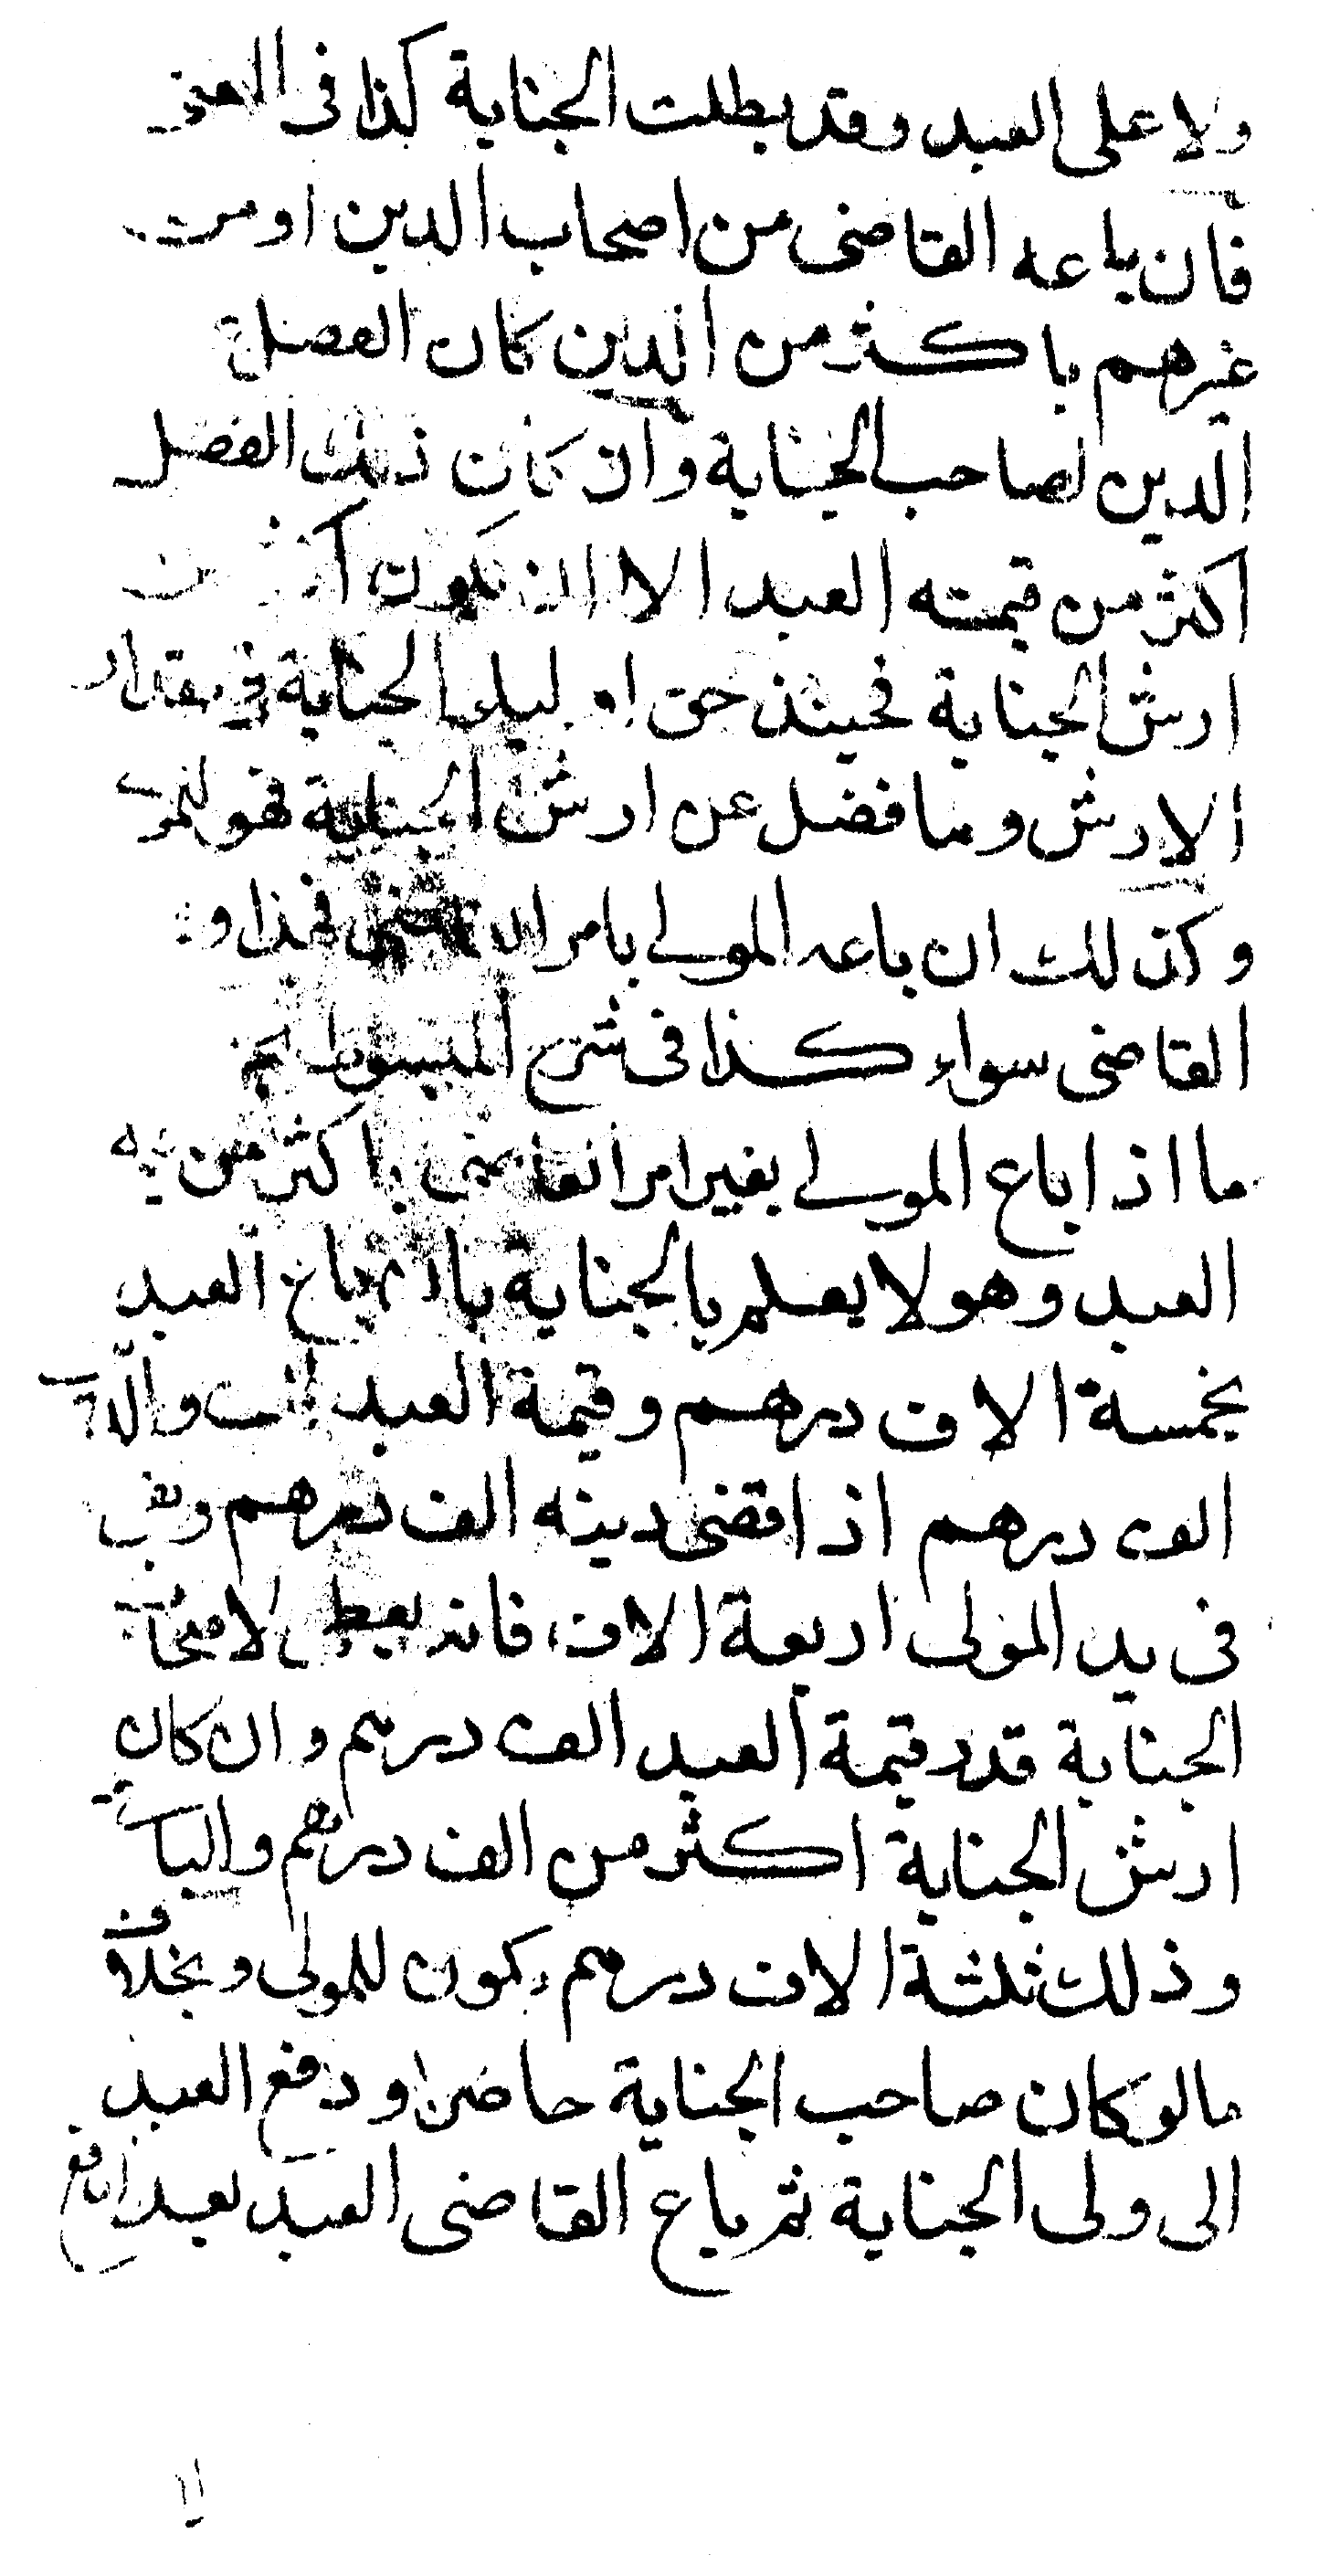 ولا على العبد وقد بطلت الجناية كذا فى
فان باعه القاضى من اصحاب الدين او من
غيرهم باكثر من الدين كان الفضل
الدين لصاحب الجناية وان كان ذلك الفضل
اكثر من قيمته العبد الا ان يكون
ارش الجناية فحينئذ حق الجناية فى مقدار
الارش وما فضل عن ارش الجناية فهو
وكذلك ان باعه المولى بامر القاضى فهذا و
القاضى سواء كذا فى شرح المبسوط
ما اذا باع المولى بغير امر القاضى باكثر من
العبد وهو لا يعلم بالجناية بان باع العبد
بخمسة الاف درهم وقيمة العبد الف
الف درهم اذا قضى دينه الف درهم
فى يد المولى اربعة الاف فانه يعطى
الجناية قدر قيمة العبد الف درهم وان كان
ارش الجناية اكثر من الف درهم والباقى
وذلك ثلثة الاف درهم يكون للمولى وبخلاف
مالو كان صاحب الجناية حاضرا ودفع العبد
الى ولى الجناية ثم باع القاضى العبد بعد